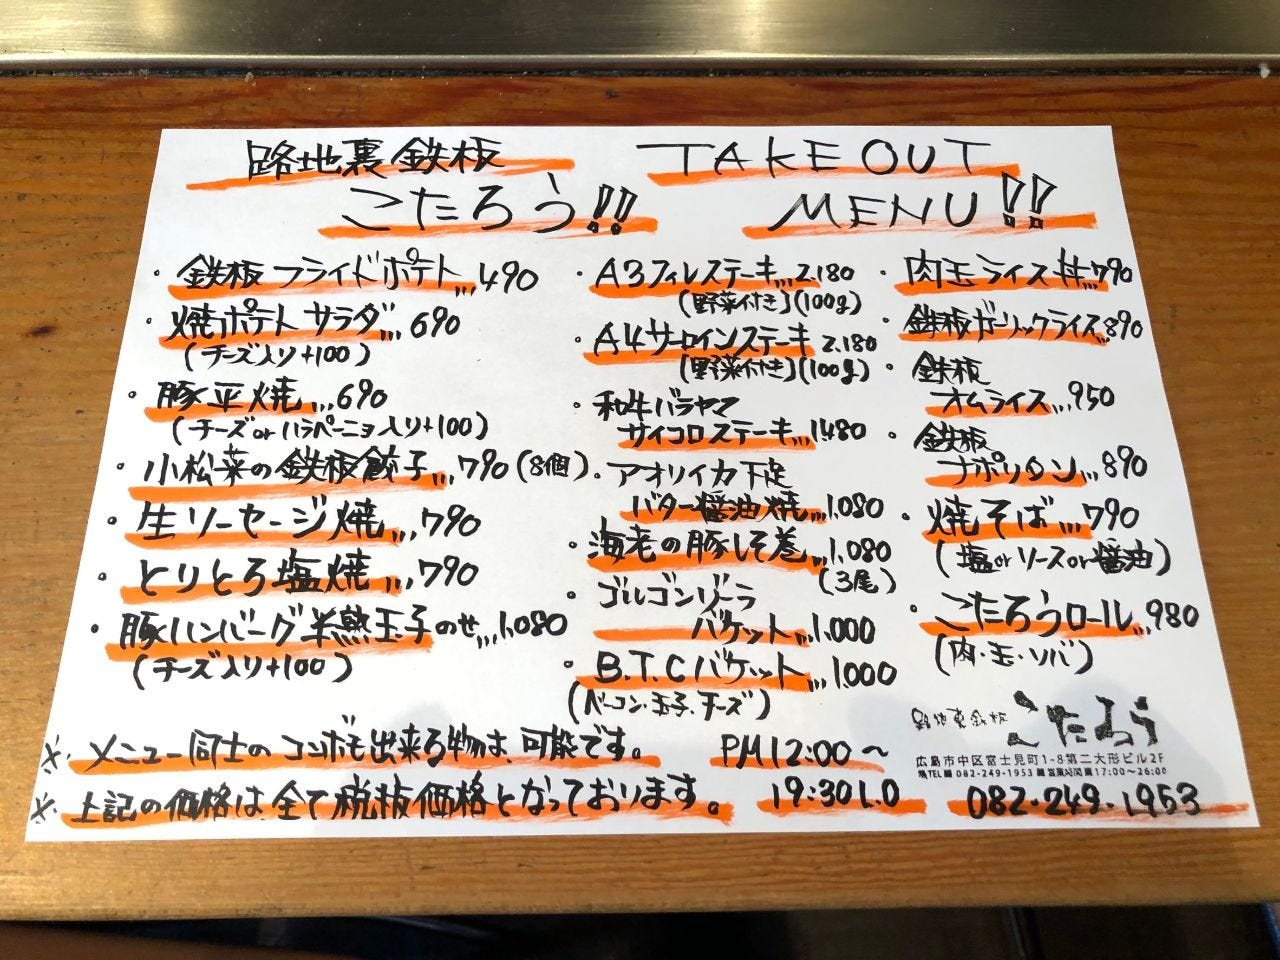 路地裏鉄板
こたろう!!
TAKE OUT
MENU!!
・鉄板フライドポテト...490
・焼ポテトサラダ...690
(チーズ入り+100)
・豚平焼...690
(チーズorハラペーニョ入り+100)
・小松菜の鉄板餃子...790(8個)
・生ソーセージ焼...790
・とりとろ塩焼...790
・豚ハンバーグ半熟玉子のせ...1.080
(チーズ入り+100)
・A3フィレステーキ...2.180
(野菜付き)(100g)
・A4サーロインステーキ 2.180
(野菜付き)(100g)
・和牛バラヤマ
サイコロステーキ...1.480
・アオリイカ下足
バター醤油焼...1.080
・海老の豚しそ巻...1.080
(3尾)
・ゴルゴンゾーラ
バケット...1.000
・B.T.Cバケット...1.000
(ベーコン.玉子.チーズ)
・肉玉ライス丼790
・鉄板ガーリックライス890
・鉄板
オムライス...950
・鉄板
ナポリタン...890
・焼そば...790
(塩orソースor醤油)
・こたろうロール...980
(肉・玉・ソバ)
※メニュー同士のコンボも出来る物は、可能です。
※上記の価格は全て税抜価格となっております。
PM12:00〜
19:30L.O
路地裏鉄板 こたろう
広島市中区富士見町1-8第二大形ビル2F
TEL■082-249-1953■営業時間■17:00〜26:00
082.249.1953